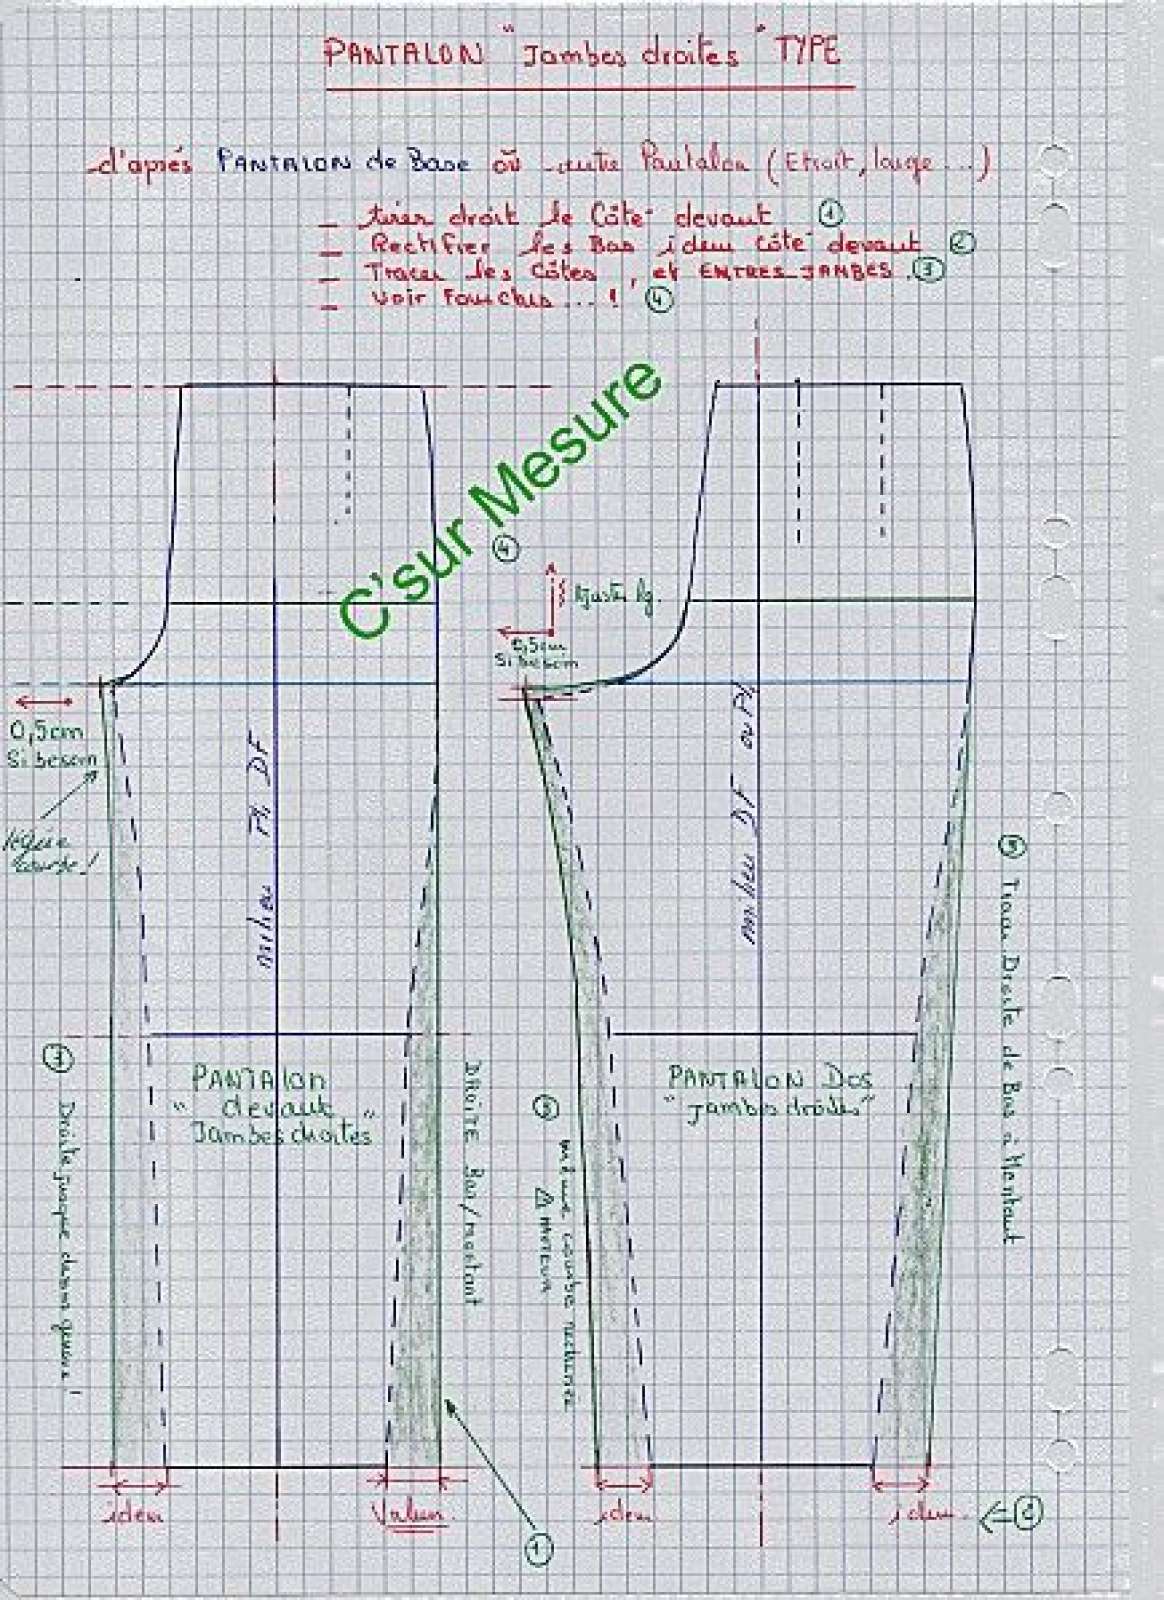 PANTALON "Jambes droites" TYPE
d'aprés PANTALON de Base où autre Pantalon (Etroit, large ...)
_ tirer droit le Côté devant ①
_ Rectifier les Bas idem côté devant ②
_ Tracer les Côtés, et ENTRES-JAMBES. ③
_ Voir Fourches ... ! ④
C'sur Mesure
④
Ajuster lg.
0,5cm
Si besoin
0,5cm
Si besoin
légère
courbe !
milieu Pl. DF
milieu DF ou Pl.
PANTALON
"devant"
Jambes droites
PANTALON DOS
"jambes droites"
③ Droite jusque dessus genou !
DROITE Bas/montant
③ même courbe
③ Tracer Droite de Bas à Montant
idem
Valeur
idem
idem
②
①